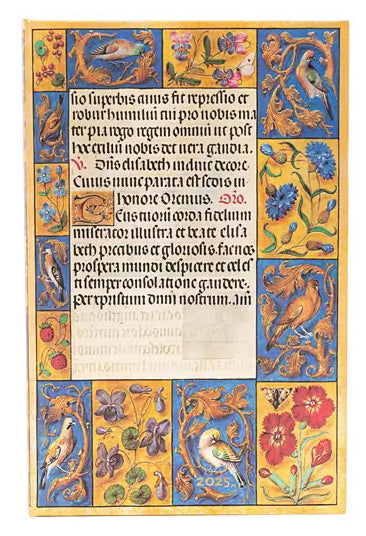 sio superbis cuius fit repressio et
robur humiliū tui pro nobis ma
ter pia rego regem omniū ut post
hoc exiliū nobis det vera gaudia.
V. Diis elisabeth induit decore.
Cuius nunc parata est sedis in
honore Oremus. Oro.
Deus tuorū corda fidelium
miserator illustra et beate elisa
beth precibus et gloriosis facnos
prospera mundi despicere et celes
ti semper consolatione gaudere.
Per xpistum dnm nostrum. am
2025